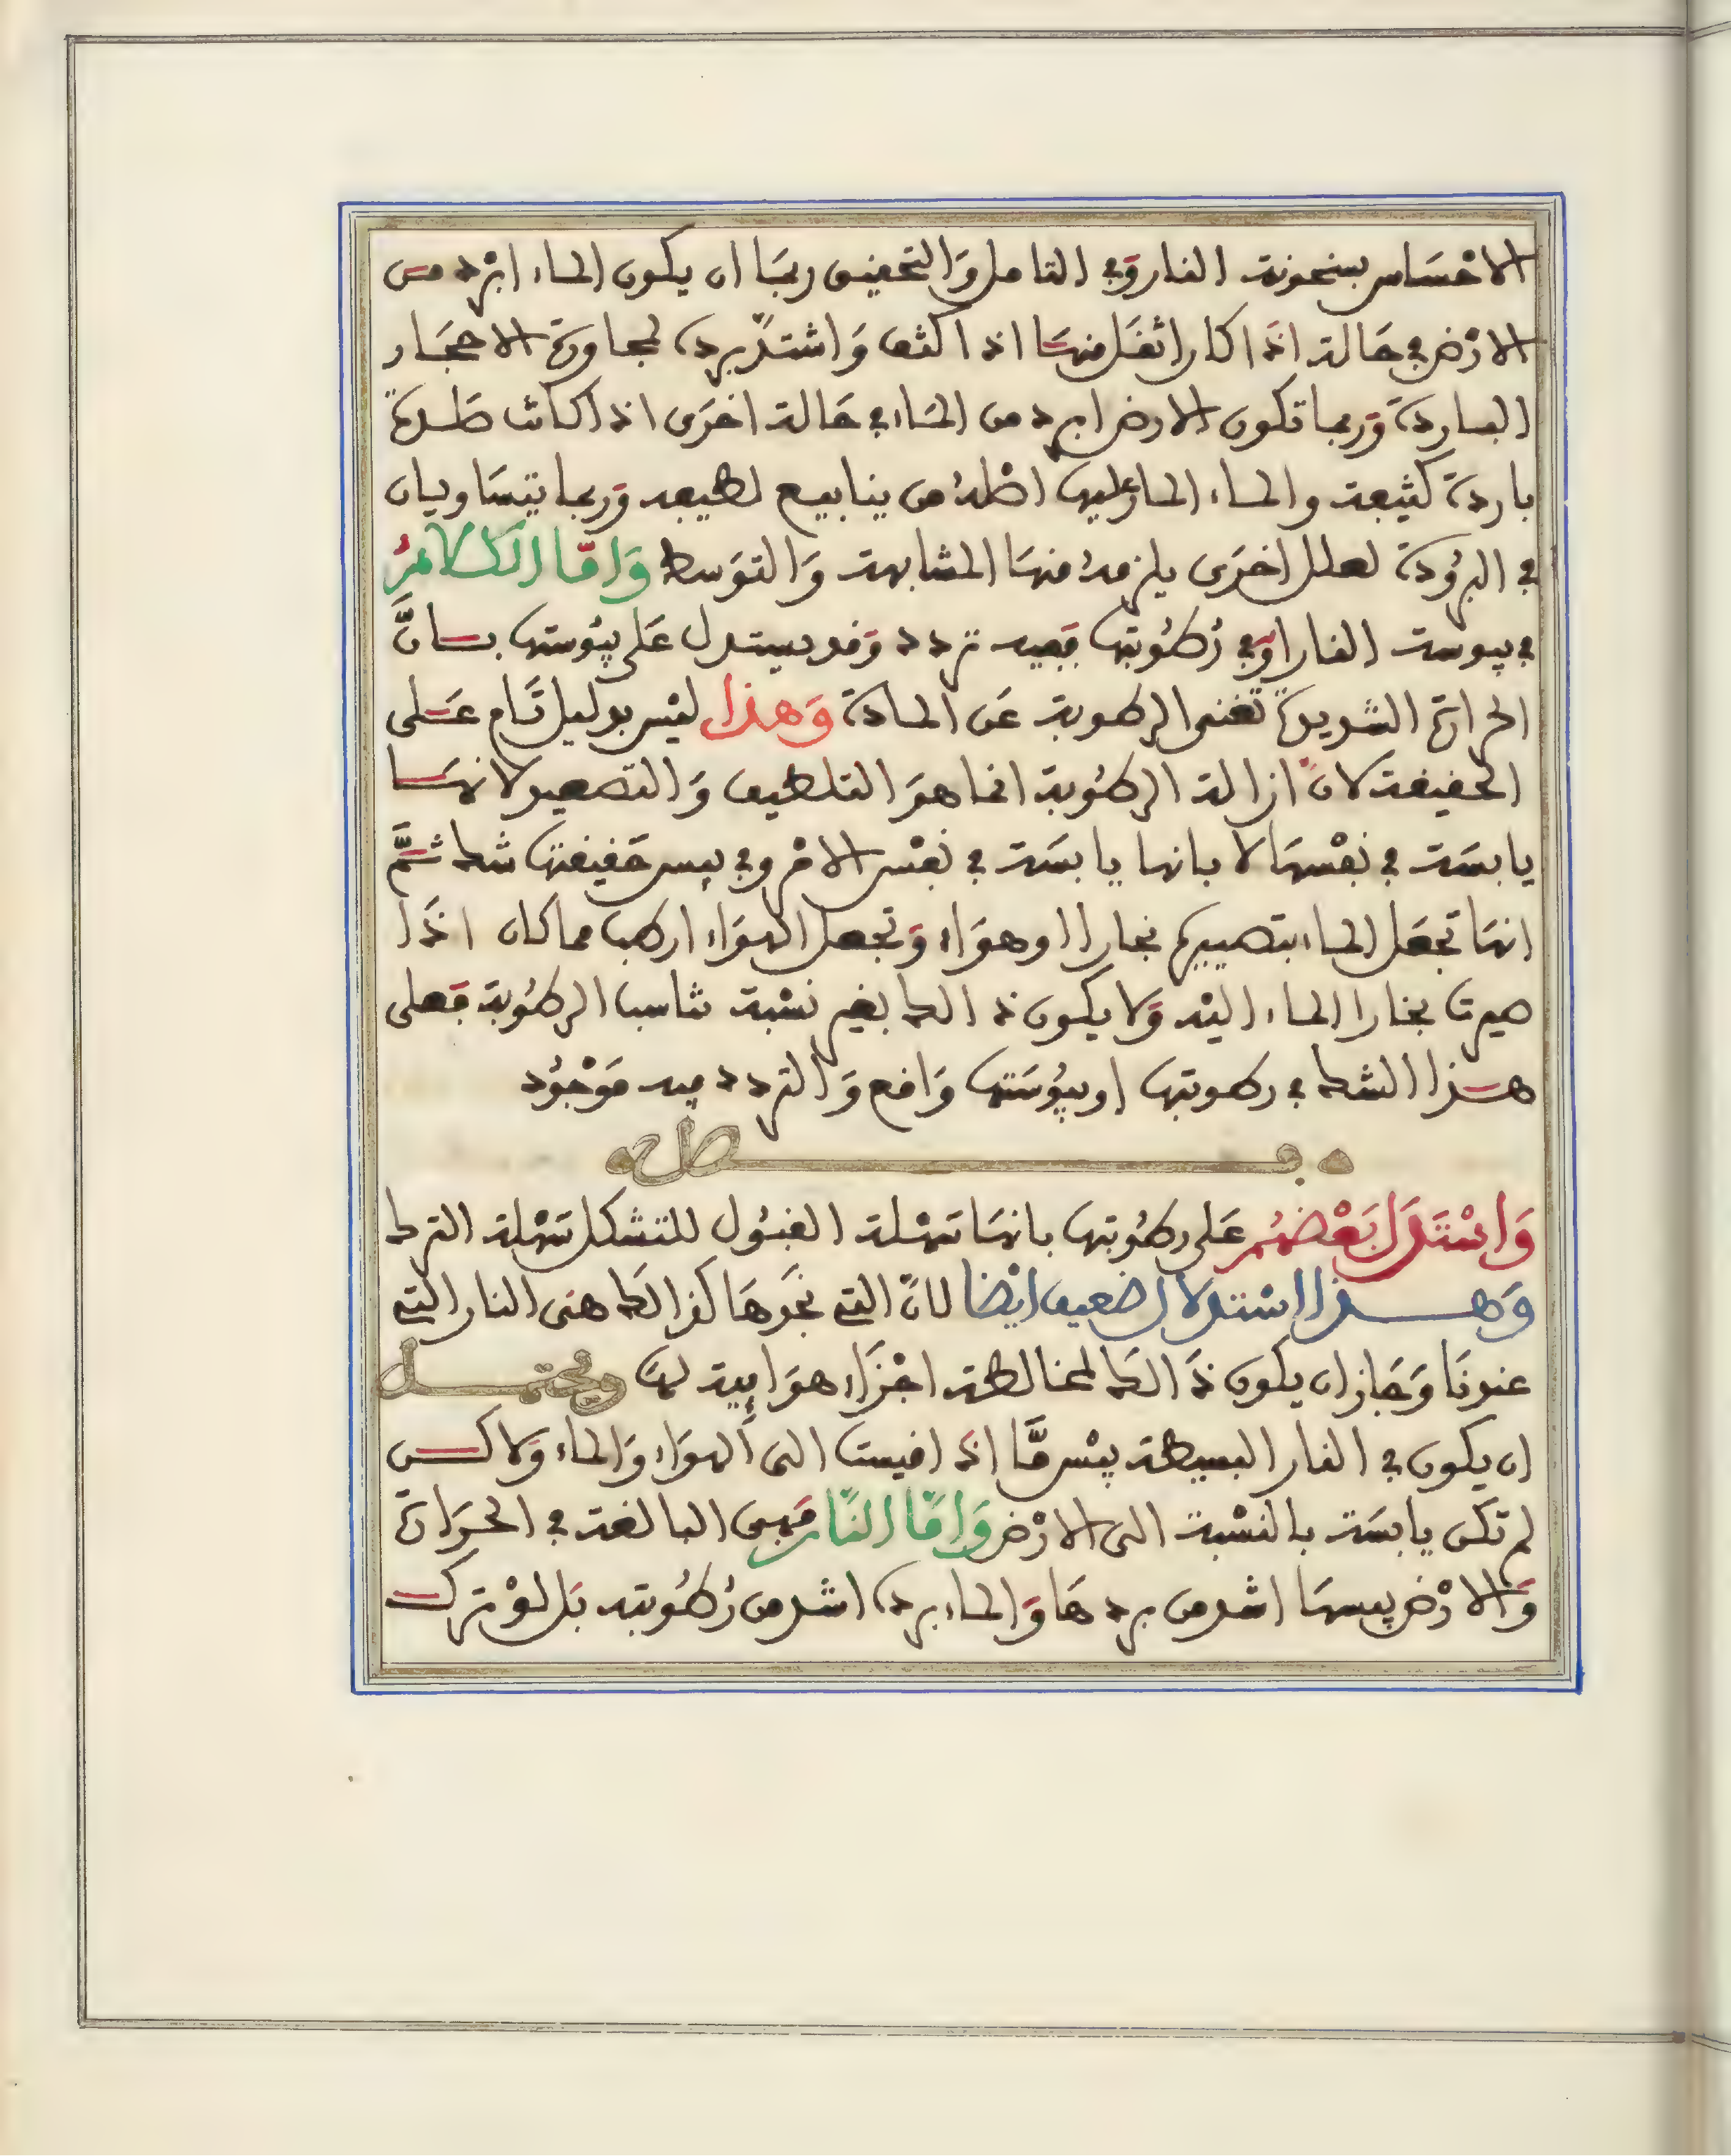 الاحْسَاس بسخونة النار وَفي التامل وَالتحفيق ربمَا ان يكون الماء ابْرد من
الارْض في حَالة اذَا كان اثفَل منهَا اذ اكثف وَاشتدّ برده لمجاورة الاحجَار
الباردة وَربما تكون الارض ابرد من المَاء في حَالة اخرَى اذ اكانت صَلدة
باردة كثيفة والماء اصْله من ينابيع لطيفة وَربما يتسَاويان
في البرُودة لعلل اخرَى يلزمه منهَا المشابهة وَالتوَسط وَامّا الكلامُ
في يبوسة النار اوَفي رُطُوبتها ففيه تردد وَفد يستدل عَلى يبُوستها بانَّ
الحرارة الشديدة تفنى الرطوبة عَن المادة وَهذا ليْس بدليل تَام عَلى
الحفيفة لانّ ازالة الرطُوبة انما هوَ التلطيف وَالتصعيد لانهَا
يابسَة في نفْسهَا لا بانها يابسَة في نفْس الامْر وفي يبس حَفيفتها شك ثمَّ
انهَا تجعَل الماء بتصييره بخارا او هوَاء وَتجعل الهوَاء ارطب مما كان اذَا
صيرت بخارا الماء اليْه وَلا يكون ذالك بغير نسْبة تناسب الرطُوبة فعلى
هذا الشك في رطوبتها او يبُوسَتها وَافع وَالتردد فيه مَوْجُود
فصل
وَاسْتَدَل بَعْضهُم عَلى رطُوبتها بانهَا سَهْلة الفبُول للتشكل سَهْلة الترك
وَهذا اسْتدلال ضعيف ايْضا لانّ التي نجَدهَا كذالك هنى النار التي
عندنَا وَجَاز ان يكون ذَالك لمخالطة اجْزَاء هوَايية لهَا ويحتمل
ان يكون في النار البسيطة يبْس مَّا اذَا فيست الى الهوَاء وَالماء وَلاكن
لم تكن يابسَة بالنسْبة الى الارْض وَامّا النّار فَهى البالغة في الحرَارة
وَالارْض يبسهَا اشد من بردهَا وَالماء برده اشد من رُطُوبته بَل لوْ ترك